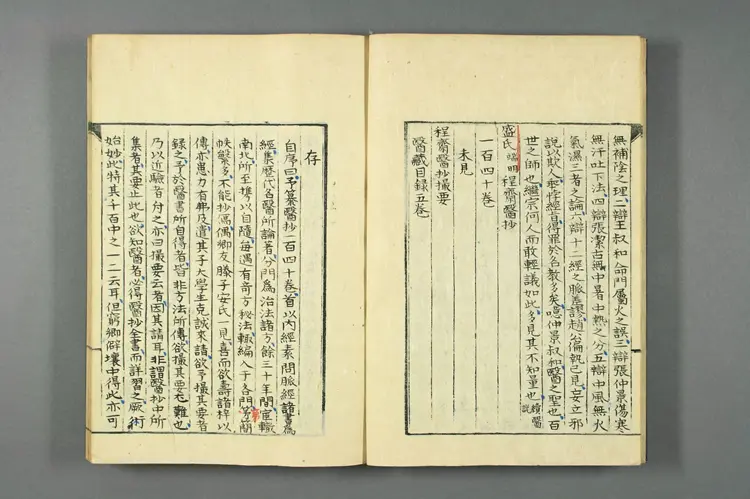 無補陰之理二辯王叔和命門屬火之誤三辯張仲景傷寒
無汗吐下法四辯張潔古無中暑中熱之分五辯中風無火
氣濕三者之論六辯十二經之脈差謬趙倫執己見妄立邪
說以欺人悖經旨得罪於名教多矣噫仲景叔和醫之聖也百
世之師也繼宗何人而敢輕議如此多見其不知量也續醫說
盛氏端明程齋醫抄
一百四十卷
未見
程齋醫抄撮要
醫藏目錄五卷
存
自序曰予纂醫抄一百四十卷首以內經素問脈經諸書為
經集歷代名醫所論著分門為治法諸方餘三十年間宦轍
南北所至攜以自隨每遇有奇方秘法輒編入于各門第簡
帙繁多不能抄傳偶鄉友滕子安氏一見喜而欲壽諸梓以
傳亦患力有弗及遣其子大學生克誠來諸欲予撮其要者
錄之予於醫書所自得者皆非方法所傳欲撮其要尤難也
乃以近驗者付之亦曰撮要云者因其請耳非謂醫抄中所
集者其要止此也欲知醫者必得醫抄全書而詳習之厥術
始妙此特其千百中之一二云耳但窮鄉僻壤中得此亦可